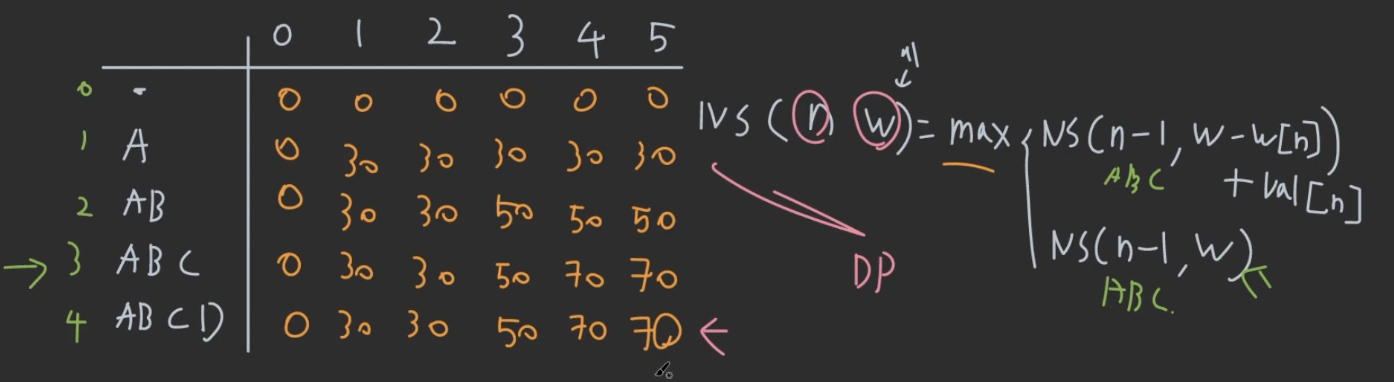 0 1 2 3 4 5
0 - 0 0 0 0 0 0
1 A 0 30 30 30 30 30
2 AB 0 30 30 50 50 50
→ 3 ABC 0 30 30 50 70 70
4 ABCD 0 30 30 50 70 70 ←
NS(n w) = max { NS(n-1, w-w[n])
ABC + val[n]
NS(n-1, w)
ABC.
DP